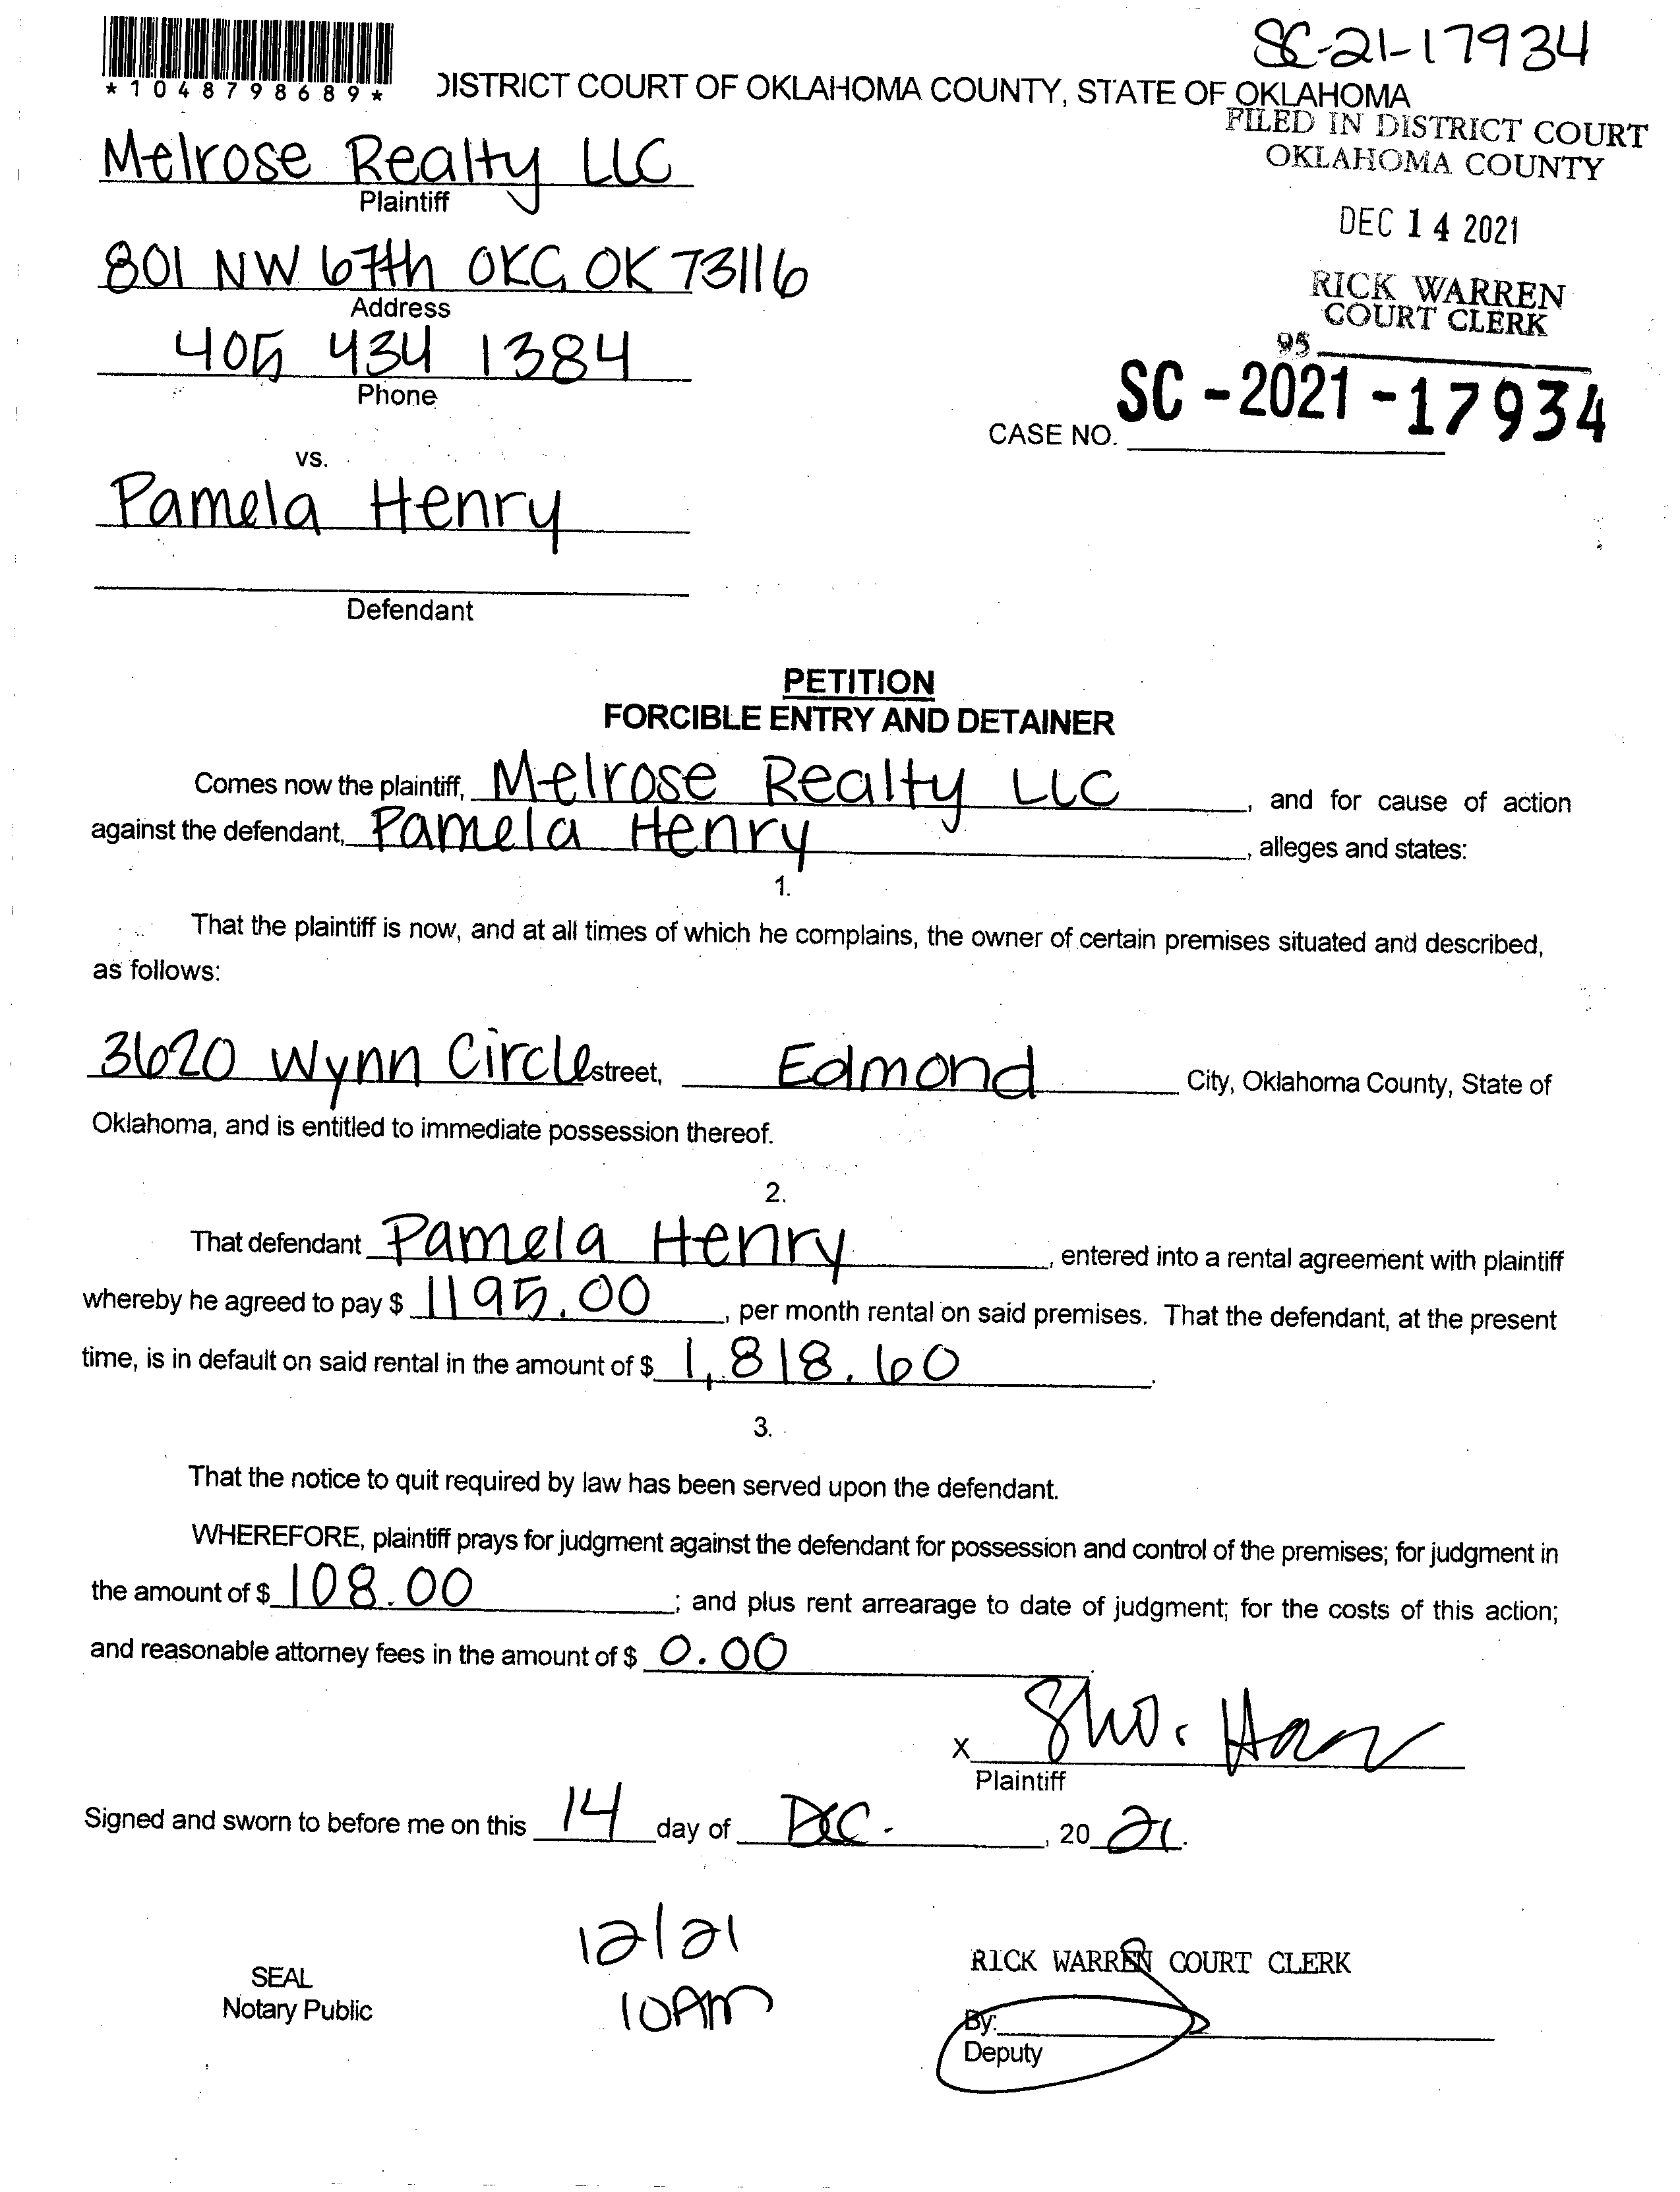 SC-21-17934
*1048798689*
DISTRICT COURT OF OKLAHOMA COUNTY, STATE OF OKLAHOMA
FILED IN DISTRICT COURT
OKLAHOMA COUNTY
Melrose Realty LLC
Plaintiff
DEC 14 2021
801 NW 67th OKC, OK 73116
Address
RICK WARREN
COURT CLERK
405 434 1384
Phone
95
CASE NO. SC-2021-17934
vs.
Pamela Henry
Defendant
PETITION
FORCIBLE ENTRY AND DETAINER
Comes now the plaintiff, Melrose Realty LLC, and for cause of action
against the defendant, Pamela Henry, alleges and states:
1.
That the plaintiff is now, and at all times of which he complains, the owner of certain premises situated and described,
as follows:
3620 Wynn Circle street, Edmond City, Oklahoma County, State of
Oklahoma, and is entitled to immediate possession thereof.
2.
That defendant Pamela Henry, entered into a rental agreement with plaintiff
whereby he agreed to pay $ 1195.00, per month rental on said premises. That the defendant, at the present
time, is in default on said rental in the amount of $ 1,818.60.
3.
That the notice to quit required by law has been served upon the defendant.
WHEREFORE, plaintiff prays for judgment against the defendant for possession and control of the premises; for judgment in
the amount of $ 108.00; and plus rent arrearage to date of judgment; for the costs of this action;
and reasonable attorney fees in the amount of $ 0.00.
X
Plaintiff
Signed and sworn to before me on this 14 day of Dec., 20 21.
12/21
10AM
SEAL
Notary Public
RICK WARREN COURT CLERK
By:
Deputy